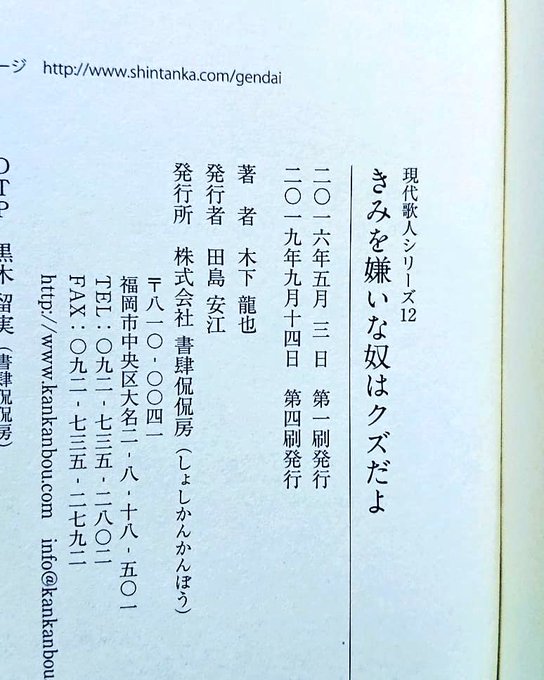 ージ http://www.shintanka.com/gendai
現代歌人シリーズ12
きみを嫌いな奴はクズだよ
二〇一六年五月 三 日 第一刷発行
二〇一九年九月十四日 第四刷発行
著 者 木下 龍也
発行者 田島 安江
発行所 株式会社 書肆侃侃房（しょしかんかんぼう）
〒八一〇-〇〇四一
福岡市中央区大名二-八-十八-五〇一
TEL：〇九二-七三五-二八〇二
FAX：〇九二-七三五-二七九二
http://www.kankanbou.com info@kankanbou
DTP 黒木 留実（書肆侃侃房）